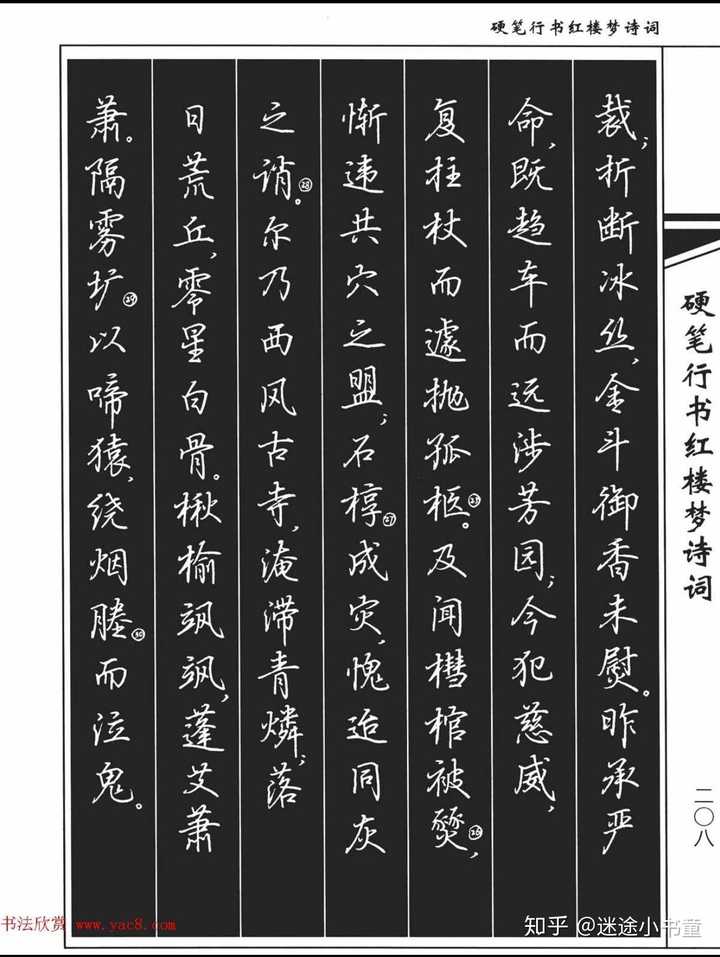 硬笔行书红楼梦诗词
裁；折断冰丝，金斗御香未熨。昨承严
命，既趋车而远涉芳园；今犯慈威，
复拄杖而遽抛孤柩㉕。及闻槥棺被燹㉖，
惭违共穴之盟；石椁㉗成灾，愧迨同灰
之诮㉘。尔乃西风古寺，淹滞青燐；落
日荒丘，零星白骨。楸榆飒飒，蓬艾萧
萧。隔雾圹㉙以啼猿，绕烟塍㉚而泣鬼。
硬笔行书红楼梦诗词
二〇八
书法欣赏 www.yac8.com
知乎 @迷途小书童